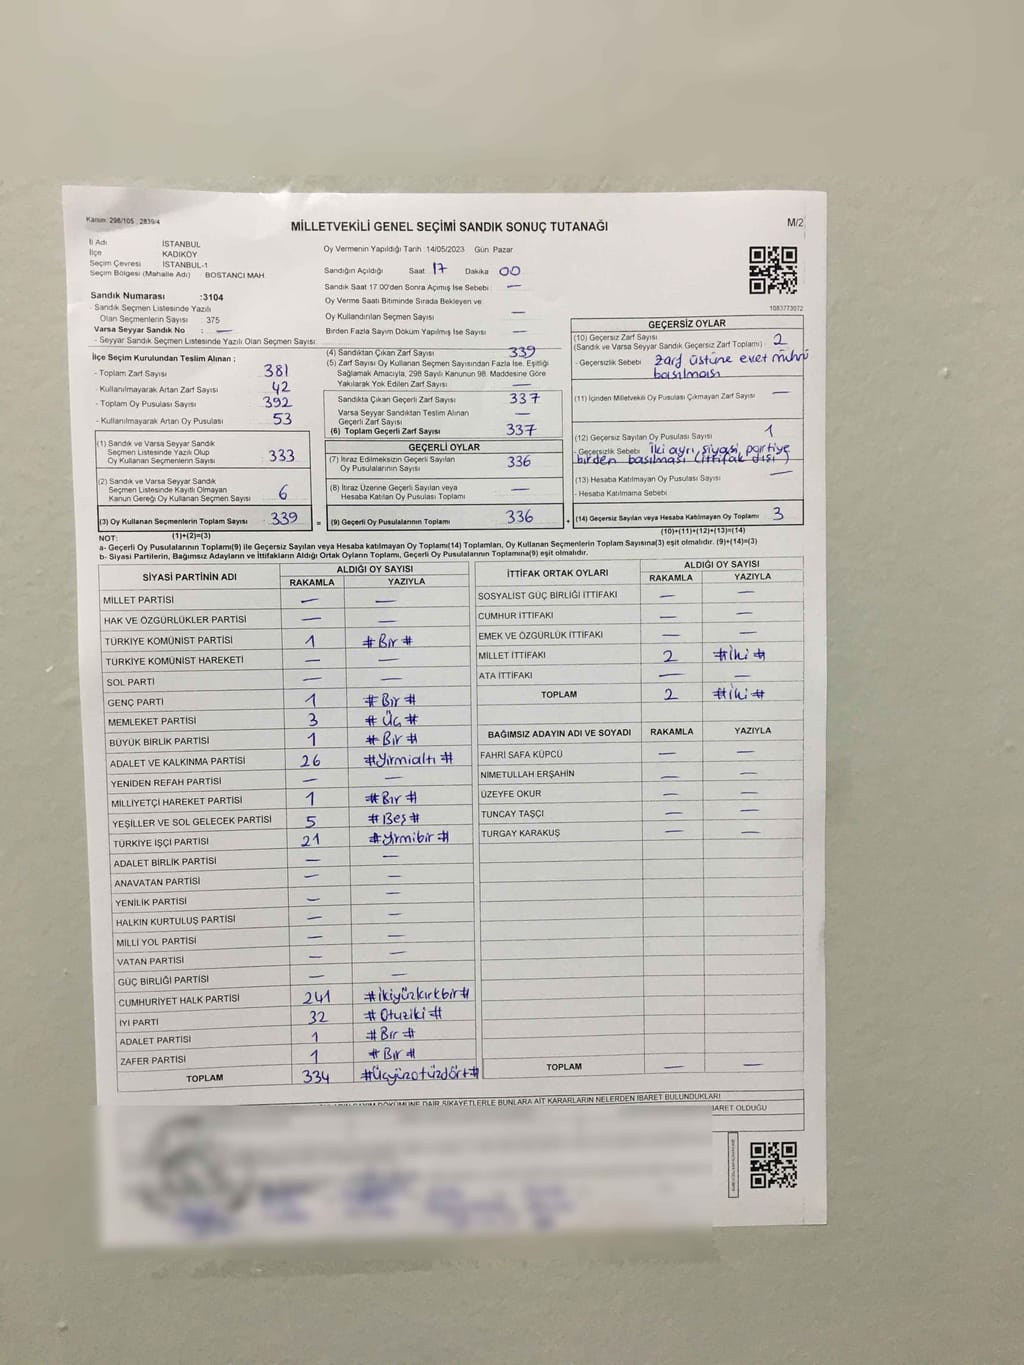 Kanun: 298/105, 2839/4
MİLLETVEKİLİ GENEL SEÇİMİ SANDIK SONUÇ TUTANAĞI
M/2
İl Adı İSTANBUL
İlçe KADIKÖY
Seçim Çevresi İSTANBUL-1
Seçim Bölgesi (Mahalle Adı) BOSTANCI MAH.
Sandık Numarası :3104
- Sandık Seçmen Listesinde Yazılı
Olan Seçmenlerin Sayısı : 375
Varsa Seyyar Sandık No : —
- Seyyar Sandık Seçmen Listesinde Yazılı Olan Seçmen Sayısı:
Oy Vermenin Yapıldığı Tarih :14/05/2023 Gün Pazar
Sandığın Açıldığı Saat 17 Dakika 00
Sandık Saat 17.00'den Sonra Açımış İse Sebebi : —
Oy Verme Saati Bitiminde Sırada Bekleyen ve
Oy Kullandırılan Seçmen Sayısı —
Birden Fazla Sayım Döküm Yapılmış İse Sayısı —
1083773072
İlçe Seçim Kurulundan Teslim Alınan ;
- Toplam Zarf Sayısı 381
- Kullanılmayarak Artan Zarf Sayısı 42
- Toplam Oy Pusulası Sayısı 392
- Kullanılmayarak Artan Oy Pusulası 53
(1) Sandık ve Varsa Seyyar Sandık
Seçmen Listesinde Yazılı Olup
Oy Kullanan Seçmenlerin Sayısı 333
(2) Sandık ve Varsa Seyyar Sandık
Seçmen Listesinde Kayıtlı Olmayan
Kanun Gereği Oy Kullanan Seçmen Sayısı 6
(3) Oy Kullanan Seçmenlerin Toplam Sayısı 339 =
(1)+(2)=(3)
(4) Sandıktan Çıkan Zarf Sayısı 339
(5) Zarf Sayısı Oy Kullanan Seçmen Sayısından Fazla İse. Eşitliği
Sağlamak Amacıyla, 298 Sayılı Kanunun 98. Maddesine Göre
Yakılarak Yok Edilen Zarf Sayısı —
Sandıkta Çıkan Geçerli Zarf Sayısı 337
Varsa Seyyar Sandıktan Teslim Alınan
Geçerli Zarf Sayısı —
(6) Toplam Geçerli Zarf Sayısı 337
GEÇERLİ OYLAR
(7) İtiraz Edilmeksizin Geçerli Sayılan
Oy Pusulalarının Sayısı 336
(8) İtiraz Üzerine Geçerli Sayılan veya
Hesaba Katılan Oy Pusulası Toplamı —
(9) Geçerli Oy Pusulalarının Toplamı 336 +
GEÇERSİZ OYLAR
(10) Geçersiz Zarf Sayısı 2
(Sandık ve Varsa Seyyar Sandık Geçersiz Zarf Toplamı) :
- Geçersizlik Sebebi Zarf üstüne evet mührü
basılması
(11) İçinden Milletvekili Oy Pusulası Çıkmayan Zarf Sayısı —
(12) Geçersiz Sayılan Oy Pusulası Sayısı 1
- Geçersizlik Sebebi İki ayrı siyasi partiye
birden basılması (ittifak dışı)
(13) Hesaba Katılmayan Oy Pusulası Sayısı —
- Hesaba Katılmama Sebebi
(14) Geçersiz Sayılan veya Hesaba Katılmayan Oy Toplamı 3
(10)+(11)+(12)+(13)=(14)
NOT:
a- Geçerli Oy Pusulalarının Toplamı(9) ile Geçersiz Sayılan veya Hesaba katılmayan Oy Toplamı(14) Toplamları, Oy Kullanan Seçmenlerin Toplam Sayısına(3) eşit olmalıdır. (9)+(14)=(3)
b- Siyasi Partilerin, Bağımsız Adayların ve İttifakların Aldığı Ortak Oyların Toplamı, Geçerli Oy Pusulalarının Toplamına(9) eşit olmalıdır.
SİYASİ PARTİNİN ADI ALDIĞI OY SAYISI
RAKAMLA YAZIYLA
MİLLET PARTİSİ — —
HAK VE ÖZGÜRLÜKLER PARTİSİ — —
TÜRKİYE KOMÜNİST PARTİSİ 1 #Bir#
TÜRKİYE KOMÜNİST HAREKETİ — —
SOL PARTİ — —
GENÇ PARTİ 1 #Bir#
MEMLEKET PARTİSİ 3 #Üç#
BÜYÜK BİRLİK PARTİSİ 1 #Bir#
ADALET VE KALKINMA PARTİSİ 26 #Yirmialtı#
YENİDEN REFAH PARTİSİ — —
MİLLİYETÇİ HAREKET PARTİSİ 1 #Bir#
YEŞİLLER VE SOL GELECEK PARTİSİ 5 #Beş#
TÜRKİYE İŞÇİ PARTİSİ 21 #Yirmibir#
ADALET BİRLİK PARTİSİ — —
ANAVATAN PARTİSİ — —
YENİLİK PARTİSİ — —
HALKIN KURTULUŞ PARTİSİ — —
MİLLİ YOL PARTİSİ — —
VATAN PARTİSİ — —
GÜÇ BİRLİĞİ PARTİSİ — —
CUMHURİYET HALK PARTİSİ 241 #İkiyüzkırkbir#
İYİ PARTİ 32 #Otuziki#
ADALET PARTİSİ 1 #Bir#
ZAFER PARTİSİ 1 #Bir#
TOPLAM 334 #Üçyüzotuzdört#
İTTİFAK ORTAK OYLARI ALDIĞI OY SAYISI
RAKAMLA YAZIYLA
SOSYALİST GÜÇ BİRLİĞİ İTTİFAKI — —
CUMHUR İTTİFAKI — —
EMEK VE ÖZGÜRLÜK İTTİFAKI — —
MİLLET İTTİFAKI 2 #İki#
ATA İTTİFAKI — —
TOPLAM 2 #İki#
BAĞIMSIZ ADAYIN ADI VE SOYADI RAKAMLA YAZIYLA
FAHRİ SAFA KÜPCÜ — —
NİMETULLAH ERŞAHİN — —
ÜZEYFE OKUR — —
TUNCAY TAŞÇI — —
TURGAY KARAKUŞ — —
TOPLAM — —
DÖKÜMÜNE DAİR ŞİKAYETLERLE BUNLARA AİT KARARLARIN NELERDEN İBARET BULUNDUKLARI
İBARET OLDUĞU